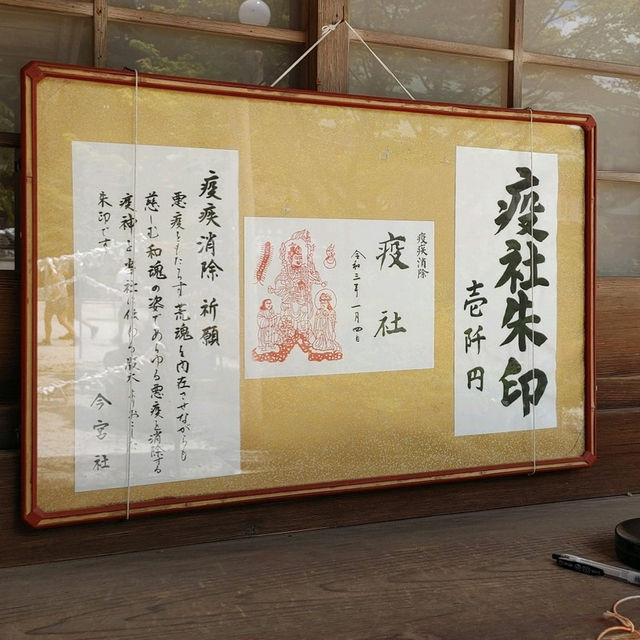 疫社朱印
壱阡円
疫疾消除
疫社
令和三年一月四日
疫疾消除 祈願
悪疫をもたらす荒魂を内在させながらも
慈しむ和魂の姿であらゆる悪疾を消除する
疫神を
朱印です。
今宮社